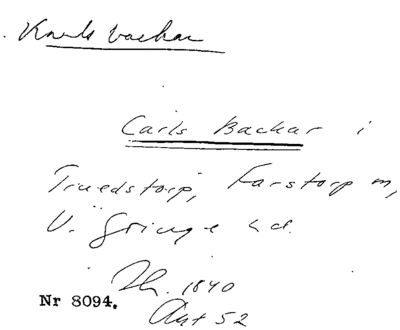 Karls backar
Carls Backar i
Truedstorp, Farstorp sn,
V. Göinge hd.
1840
Nr 8094.
Akt 52